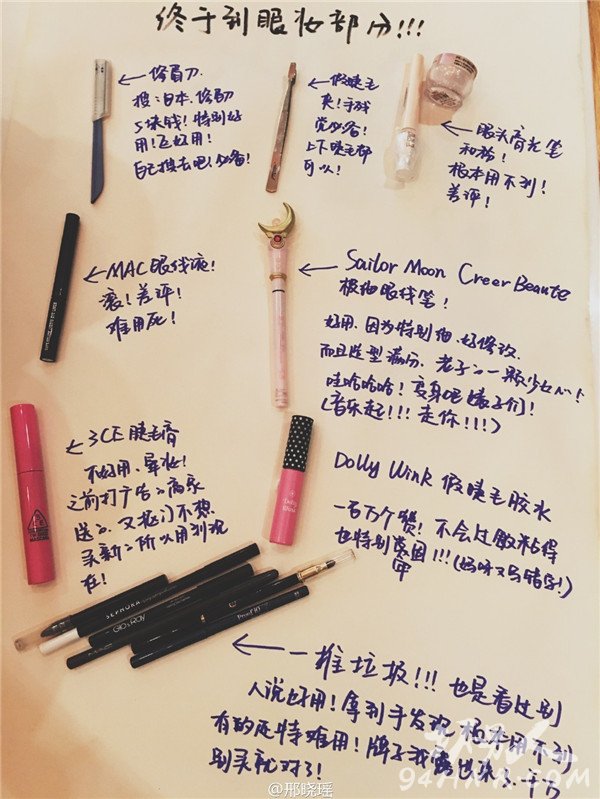 终于到眼妆部分!!!
修眉刀.
搜:日本.修眉刀
5块钱!特别好
用!飞好用!
自己搜去吧!必备!
假睫毛
夹!手残
党必备!
上下睫毛都
可以!
眼头高光笔
和粉!
根本用不到!
差评!
MAC眼线液!
滚!差评!
难用死!
Sailor Moon Creer Beaute
极细眼线笔!
好用.因为特别细.好修改.
而且造型满分.老子一颗少女心!
哇哈哈哈!变身吧 孩子们!
(音乐起!!!走你!!!)
3CE睫毛膏
不好用.晕妆!
之前打广告商家
送.又抠门不想
买新所以用到现
在!
Dolly Wink 假睫毛胶水
一百万个赞!不会过敏粘得
也特别牢固!!!(妈呀又写错字!)
Dolly
Wink
SEPHORA
GLO&RAY
一堆垃圾!!!也是看过别
人说好用!拿到手发现根本用不到
有的还特难用!牌子我露出来.
别买就对了!
@邢晓瑶